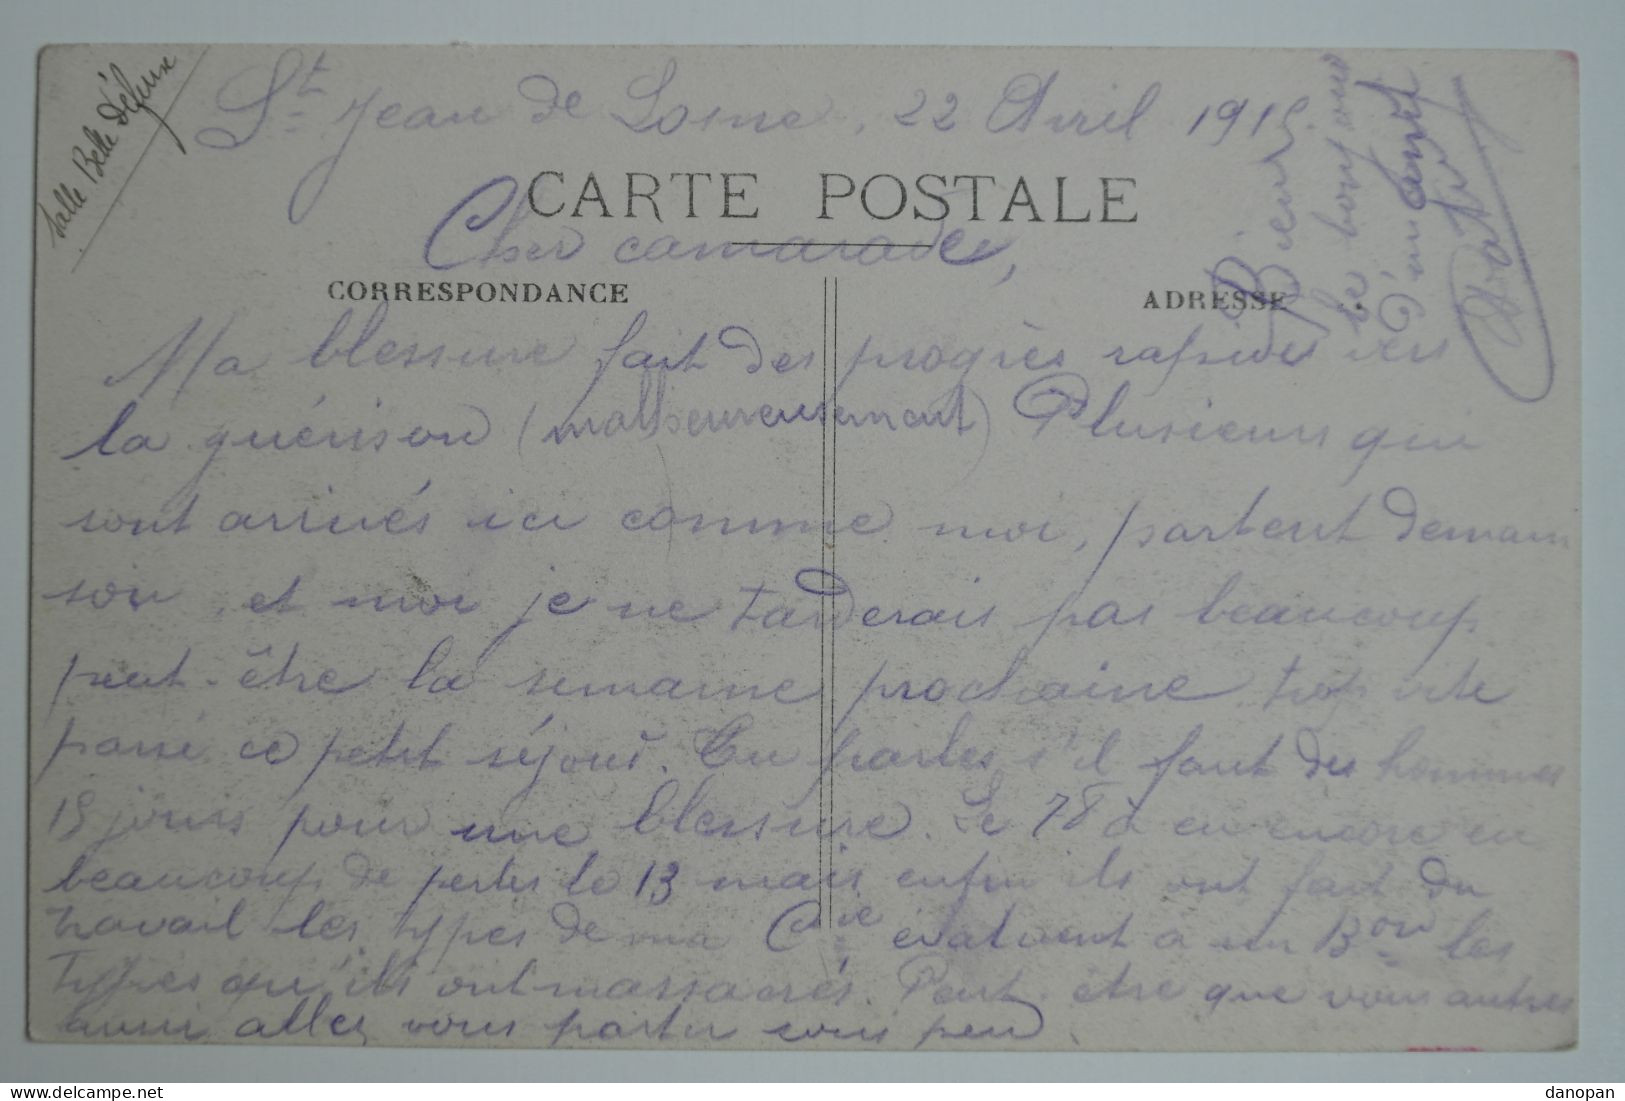 Salle Belle Défense
St Jean de Losne, 22 Avril 1915
CARTE POSTALE
Cher camarade,
CORRESPONDANCE
ADRESSE
Ma blessure fait des progrès rapides vers
la guérison (malheureusement) Plusieurs qui
sont arrivés ici comme moi, partent demain
soir, et moi je ne tarderais pas beaucoup
peut-être la semaine prochaine trop vite
passé ce petit séjour. Tu parles s'il faut des hommes
15 jours pour une blessure. Le 78 a eu encore eu
beaucoup de pertes le 13 mais enfin ils ont fait du
travail les types de ma Cie évaluent à un Bon les
types qu'ils ont massacrés. Peut-être que vous autres
aussi allez vous partir sous peu.
Bien
le bonjour
d'un ami
danopan